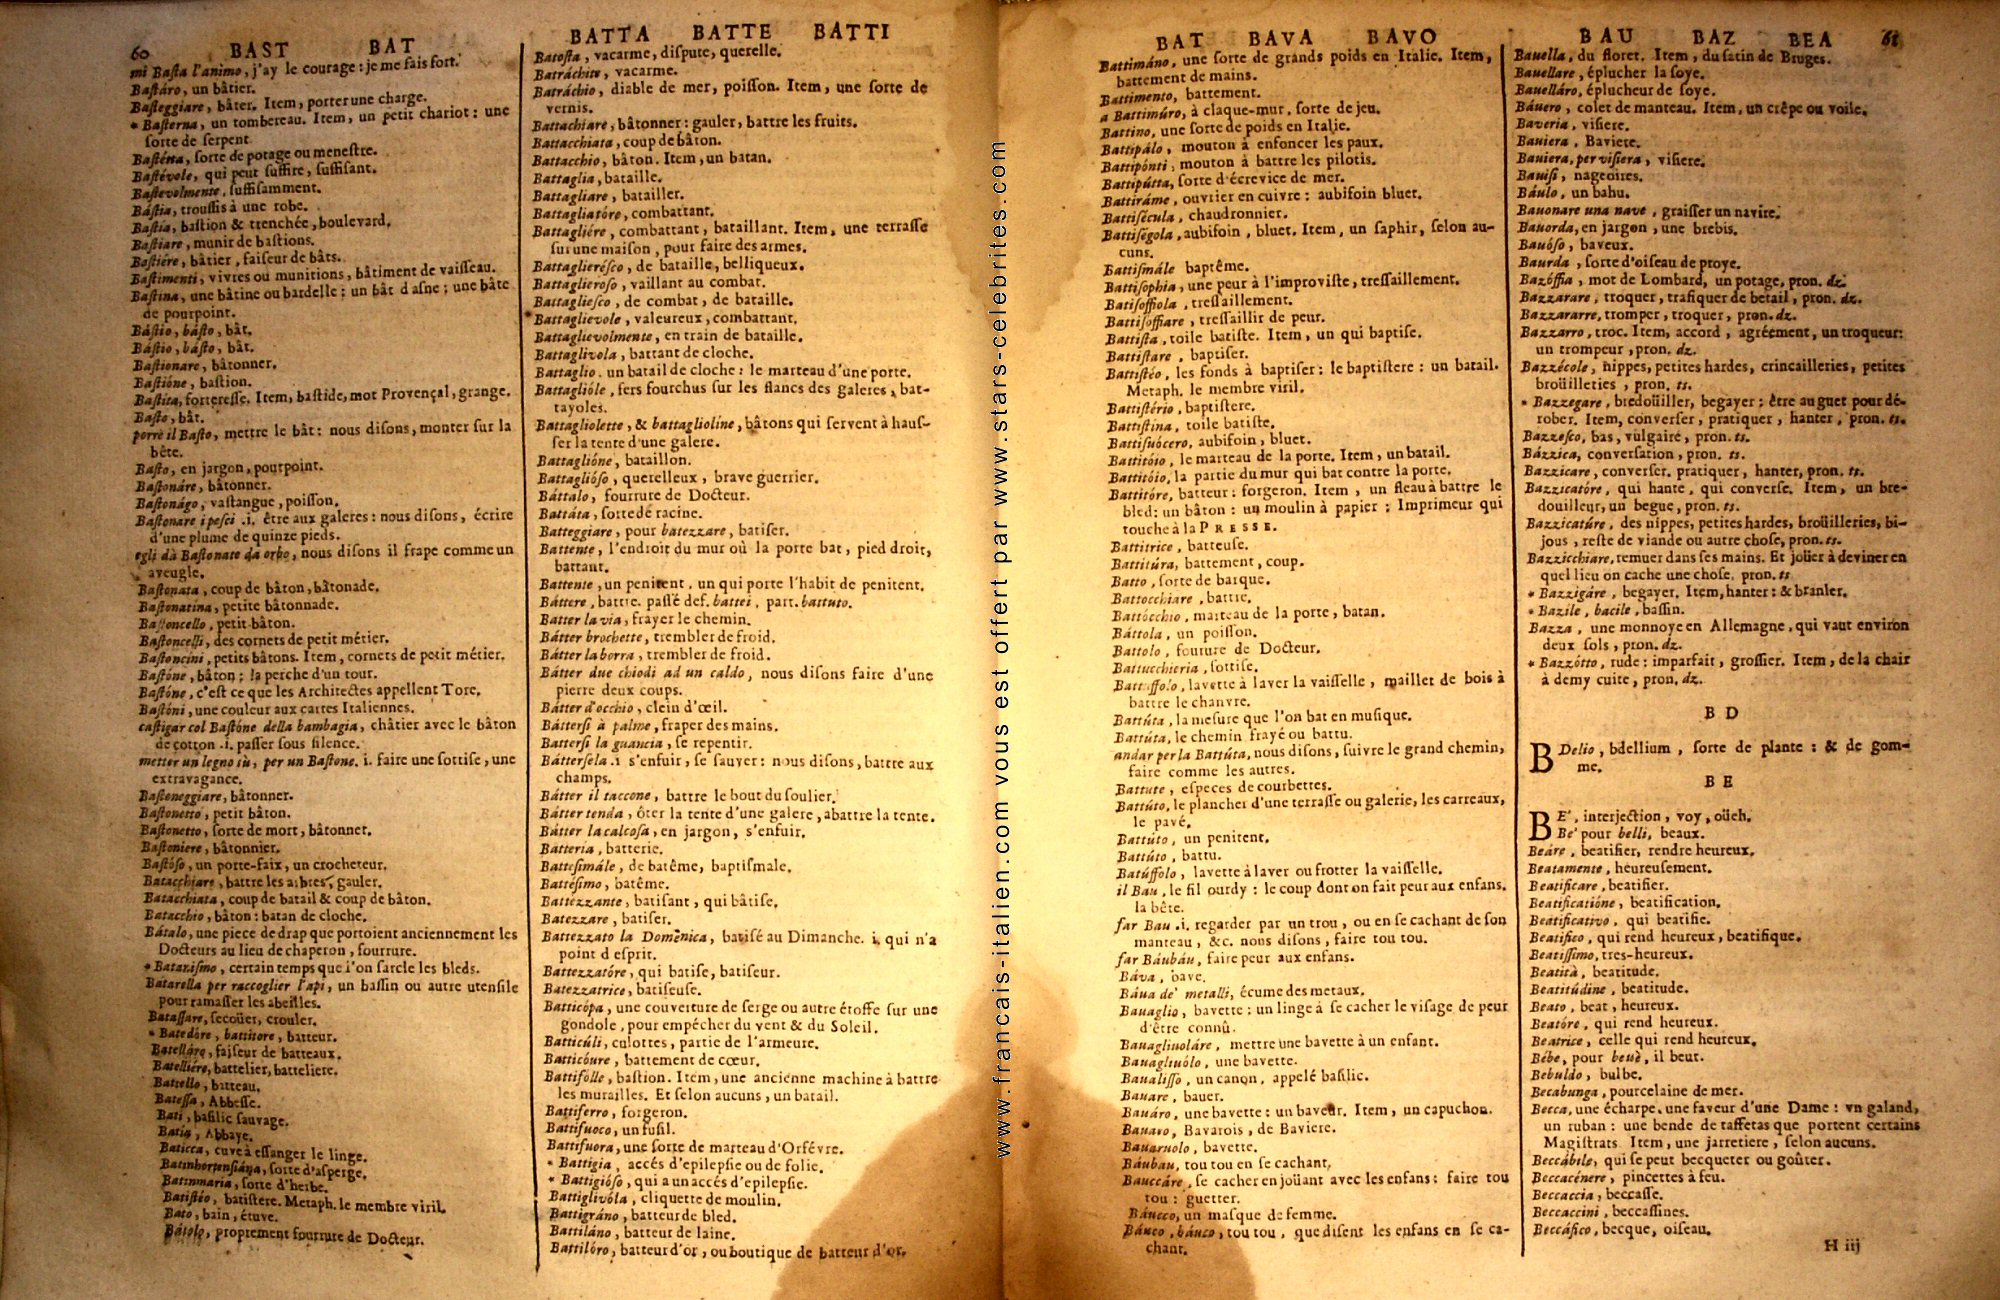 60 BAST BAT
mi Basta l'animo, j'ay le courage : je me fais fort.
Bastáro, un bâtier.
Basteggiare, bâter. Item, porter une charge.
* Basterna, un tombereau. Item, un petit chariot : une
sorte de serpent
Basténa, sorte de potage ou menestre.
Bastévole, qui peut suffire, suffisant.
Bastevolmente, suffisamment.
Bástia, troussis à une robe.
Bastía, bastion & trenchée, boulevard.
Bastiare, munir de bastions.
Bastiére, bâtier, faiseur de bâts.
Bastimenti, vivres ou munitions, bâtiment de vaisseau.
Bastina, une bâtine ou bardelle : un bât d'asne ; une bâte
de pourpoint.
Bástio, básto, bât.
Bástio, básto, bât.
Bastionare, bâtonner.
Bastióne, bastion.
Bastita, forteresse. Item, bastide, mot Provençal, grange.
Basto, bât.
porre il Basto, mettre le bât : nous disons, monter sur la
bête.
Basto, en jargon, pourpoint.
Bastonáre, bâtonner.
Bastonágo, vastangue, poisson.
Bastonare i pesci .i. être aux galeres : nous disons, écrire
d'une plume de quinze pieds.
egli dà Bastonate da orbo, nous disons il frape comme un
aveugle.
Bastonata, coup de bâton, bâtonade.
Bastonatina, petite bâtonnade.
Bastoncello, petit bâton.
Bastoncelli, des cornets de petit métier.
Bastoncini, petits bâtons. Item, cornets de petit métier.
Bastóne, bâton ; la perche d'un tour.
Bastóne, c'est ce que les Architectes appellent Tore.
Bastóni, une couleur aux cartes Italiennes.
castigar col Bastóne della bambagia, châtier avec le bâton
de cotton .i. passer sous silence.
metter un legno sù, per un Bastone. i. faire une sottise, une
extravagance.
Bastoneggiare, bâtonner.
Bastonetto, petit bâton.
Bastonetto, sorte de mort, bâtonnet.
Bastoniere, bâtonnier.
Bastóso, un porte-faix, un crocheteur.
Batacchiare, battre les arbres, gauler.
Batacchiata, coup de batail & coup de bâton.
Batacchio, bâton : batan de cloche.
Bátalo, une piece de drap que portoient anciennement les
Docteurs au lieu de chaperon, fourrure.
* Batanismo, certain temps que l'on sarcle les bleds.
Batarella per raccoglier l'api, un bassin ou autre utensile
pour ramasser les abeilles.
Batassare, secoüer, crouler.
* Batedóre, battitore, batteur.
Batelláro, faiseur de batteaux.
Batelliére, battelier, batteliere.
Batello, batteau.
Batessa, Abbesse.
Bati, basilic sauvage.
Batía, Abbaye.
Baticca, cuve à essanger le linge.
Batinhortensiána, sorte d'asperge.
Batinmaria, sorte d'herbe.
Batistéo, batistere. Metaph. le membre viril.
Bato, bain, étuve.
Bátolo, proprement fourrure de Docteur.
BATTA BATTE BATTI
Batosta, vacarme, dispute, querelle.
Batráchite, vacarme.
Batráchio, diable de mer, poisson. Item, une sorte de
vernis.
Battachiare, bâtonner : gauler, battre les fruits.
Battacchiata, coup de bâton.
Battacchio, bâton. Item, un batan.
Battaglia, bataille.
Battagliare, batailler.
Battagliatóre, combattant.
Battagliére, combattant, bataillant. Item, une terrasse
sur une maison, pour faire des armes.
Battaglierésco, de bataille, belliqueux.
Battaglieroso, vaillant au combat.
Battagliesco, de combat, de bataille.
Battaglievole, valeureux, combattant.
Battaglievolmente, en train de bataille.
Battaglivola, battant de cloche.
Battaglio, un batail de cloche : le marteau d'une porte.
Battaglióle, fers fourchus sur les flancs des galeres, bat-
tayoles.
Battagliolette, & battaglioline, bâtons qui servent à haus-
ser la tente d'une galere.
Battaglióne, bataillon.
Battaglióso, querelleux, brave guerrier.
Báttalo, fourrure de Docteur.
Battáta, sorte de racine.
Batteggiare, pour batezzare, batiser.
Battente, l'endroit du mur où la porte bat, pied droit,
battant.
Battente, un penitent, un qui porte l'habit de penitent.
Báttere, battre. passé def. battei, part. battuto.
Batter la via, frayer le chemin.
Bátter brochette, trembler de froid.
Bátter la borra, trembler de froid.
Bátter due chiodi ad un caldo, nous disons faire d'une
pierre deux coups.
Bátter d'occhio, clein d'œil.
Bátterſi à palme, fraper des mains.
Bátterſi la guancia, se repentir.
Bátterſela .i s'enfuir, se sauver : nous disons, battre aux
champs.
Bátter il taccone, battre le bout du soulier.
Bátter tenda, ôter la tente d'une galere, abattre la tente.
Bátter la calcosa, en jargon, s'enfuir.
Batteria, batterie.
Battesimále, de batême, baptismale.
Battésimo, batême.
Battezzante, batisant, qui bâtise.
Batezzare, batiser.
Battezzato la Domènica, batisé au Dimanche. i. qui n'a
point d'esprit.
Battezzatóre, qui batise, batiseur.
Batezzatrice, batiseuse.
Batticópa, une couverture de serge ou autre étoffe sur une
gondole, pour empécher du vent & du Soleil.
Batticúli, culottes, partie de l'armeure.
Batticóure, battement de cœur.
Battifólle, bastion. Item, une ancienne machine à battre
les murailles. Et selon aucuns, un batail.
Battiferro, forgeron.
Battifuoco, un fusil.
Battifuora, une sorte de marteau d'Orfévre.
* Battigia, accés d'epilepsie ou de folie.
* Battigióso, qui a un accés d'epilepsie.
Battiglivóla, cliquette de moulin.
Battigráno, batteur de bled.
Battiláno, batteur de laine.
Battilóro, batteur d'or, ou boutique de batteur d'or.
www.francais-italien.com vous est offert par www.stars-celebrites.com
BAT BAVA BAVO
Battimáno, une sorte de grands poids en Italie. Item,
battement de mains.
Battimento, battement.
a Battimúro, à claque-mur, sorte de jeu.
Battino, une sorte de poids en Italie.
Battipálo, mouton à enfoncer les paux.
Battipónti, mouton à battre les pilotis.
Battipútta, sorte d'écrevice de mer.
Battiráme, ouvrier en cuivre : aubifoin bluet.
Battisécula, chaudronnier.
Battiségola, aubifoin, bluet. Item, un saphir, selon au-
cuns.
Battismále baptême.
Battisophia, une peur à l'improviste, tressaillement.
Batisoffiola, tressaillement.
Battisoffiare, tressaillir de peur.
Battista, toile batiste. Item, un qui baptise.
Battistare, baptiser.
Battistéo, les fonds à baptiser : le baptistere : un batail.
Metaph. le membre viril.
Battistério, baptistere.
Battistina, toile batiste.
Battisuócero, aubifoin, bluet.
Battitóio, le marteau de la porte. Item, un batail.
Battitóio, la partie du mur qui bat contre la porte.
Battitóre, batteur : forgeron. Item, un fleau à battre le
bled : un bâton : un moulin à papier ; Imprimeur qui
touche à la PRESSE.
Battitrice, batteuse.
Battitúra, battement, coup.
Batto, sorte de barque.
Battocchiare, battre.
Battócchio, marteau de la porte, batan.
Báttola, un poisson.
Battolo, fourure de Docteur.
Battucchieria, sottise.
Battuffolo, lavette à laver la vaisselle, maillet de bois à
battre le chanvre.
Battúta, la mesure que l'on bat en musique.
Battúta, le chemin frayé ou battu.
andar per la Battúta, nous disons, suivre le grand chemin,
faire comme les autres.
Battute, especes de courbettes.
Battúto, le plancher d'une terrasse ou galerie, les carreaux,
le pavé.
Battúto, un penitent.
Battúto, battu.
Batúffolo, lavette à laver ou frotter la vaisselle.
il Bau, le fil ourdy : le coup dont on fait peur aux enfans.
la bête.
far Bau .i. regarder par un trou, ou en se cachant de son
manteau, &c. nous disons, faire tou tou.
far Báubáu, faire peur aux enfans.
Báva, bave.
Báua de' metalli, écume des metaux.
Bauaglio, bavette : un linge à se cacher le visage de peur
d'être connû.
Bauagliuoláre, mettre une bavette à un enfant.
Bauagliuólo, une bavette.
Baualisso, un canon, appelé basilic.
Bauare, bauer.
Bauáro, une bavette : un baveur. Item, un capuchon.
Bauaro, Bavarois, de Baviere.
Bauaruolo, bavette.
Báubau, tou tou en se cachant,
Bauccáre, se cacher en joüant avec les enfans : faire tou
tou : guetter.
Báucco, un masque de femme.
Báuco, báuco, tou tou, que disent les enfans en se ca-
chant.
BAU BAZ BEA 61
Bauella, du floret. Item, du satin de Bruges.
Bauellare, éplucher la soye.
Bauelláro, éplucheur de soye.
Báuero, colet de manteau. Item, un crêpe ou voile.
Baveria, visiere.
Bauiera, Baviere.
Bauiera, per visiera, visiere.
Bauisi, nageoires.
Báulo, un bahu.
Bauonare una nave, graisser un navire.
Bauorda, en jargon, une brebis.
Bauóso, baveux.
Baurda, sorte d'oiseau de proye.
Bazóffia, mot de Lombard, un potage, pron. dz.
Bazzarare, troquer, trafiquer de betail, pron. dz.
Bazzararre, tromper, troquer, pron. dz.
Bazzarro, troc. Item, accord, agréement, un troqueur :
un trompeur, pron. dz.
Bazzécole, nippes, petites hardes, crincailleries, petites
broüilleties, pron. ts.
* Bazzegare, bredoüiller, begayer ; être au guet pour dé-
rober. Item, converser, pratiquer, hanter, pron. ts.
Bazzesco, bas, vulgaire, pron. ts.
Bázzica, conversation, pron. ts.
Bazzicare, converser. pratiquer, hanter, pron. ts.
Bazzicatóre, qui hante, qui converse. Item, un bre-
douilleur, un begue, pron. ts.
Bazzicatúre, des nippes, petites hardes, broüilleries, bi-
jous, reste de viande ou autre chose, pron. ts.
Bazzicchiare, remuer dans ses mains. Et joüer à deviner en
quel lieu on cache une chose, pron. ts
* Bazzigáre, begayer. Item, hanter : & branler.
* Bazile, bacile, bassin.
Bazza, une monnoye en Allemagne, qui vaut environ
deux sols, pron. dz.
* Bazzótto, rude : imparfait, grossier. Item, de la chair
à demy cuite, pron. dz.
B D
BDelio, bdellium, sorte de plante : & de gom-
me.
B E
BE', interjection, voy, oüeh.
Be' pour belli, beaux.
Beáre, beatifier, rendre heureux.
Beatamente, heureusement.
Beatificare, beatifier.
Beatificatióne, beatification.
Beatificativo, qui beatifie.
Beatifico, qui rend heureux, beatifique.
Beatissimo, tres-heureux.
Beatità, beatitude.
Beatitúdine, beatitude.
Beato, beat, heureux.
Beatóre, qui rend heureux.
Beatrice, celle qui rend heureux.
Bébe, pour beuè, il beut.
Bebuldo, bulbe.
Becabunga, pourcelaine de mer.
Becca, une écharpe, une faveur d'une Dame : un galand,
un ruban : une bende de taffetas que portent certains
Magistrats Item, une jarretiere, selon aucuns.
Beccábile, qui se peut becqueter ou goûter.
Beccacénere, pincettes à feu.
Beccaccia, beccasse.
Beccaccini, beccassines.
Beccáfico, becque, oiseau.
H iij